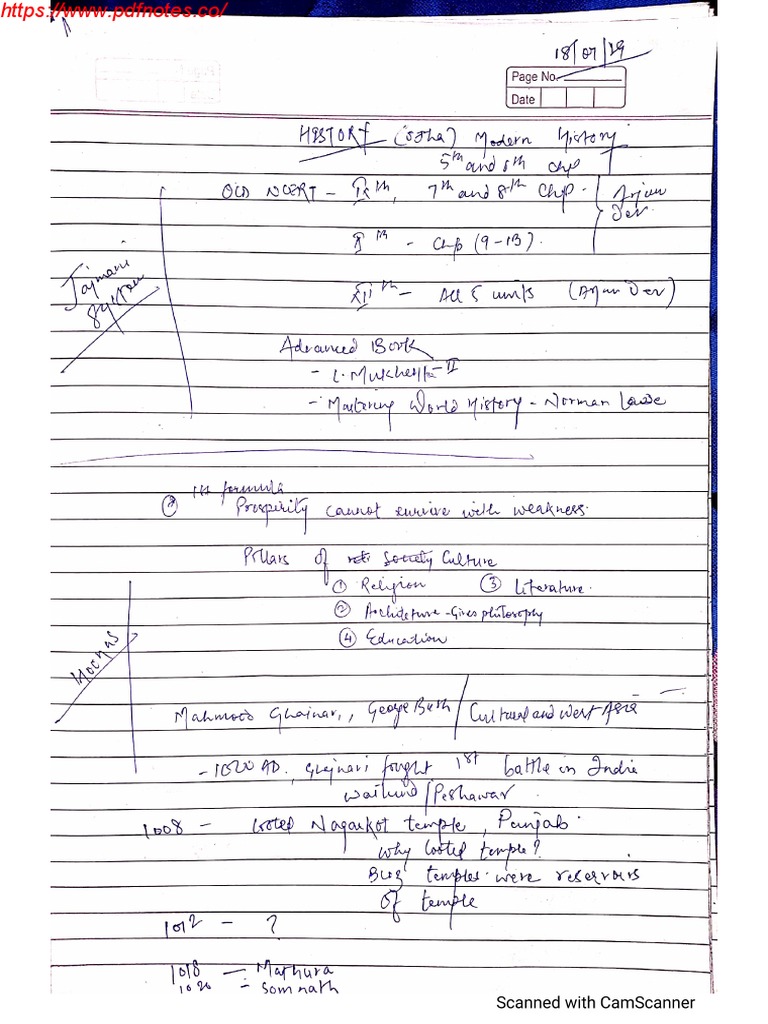 https://www.pdfnotes.co/
18/07/19
Page No.
Date
HISTORY (Ojha) Modern History
5th and 6th chp
OLD NCERT - IXth, 7th and 8th Chp. Arjun Dev.
Xth - Chp (9-13).
XIIth - All 5 units (Arjun Dev)
Jajmani System
Advanced Book
- L. Mukherjee - II
- Mastering World History - Norman Lowe
1st formula
Prosperity cannot survive with weakness.
Pillars of Society Culture
① Religion ③ Literature.
② Architeture - Gives philosophy
④ Education
Mahmood Ghajnavi, George Bush / Cultural and West Asia
- 1000 AD, Ghajnavi fought 1st battle in India
Waihind / Peshawar
1008 - looted Nagarkot temple, Punjab.
Why looted temple?
Buz temples were reservoirs
of temple
1012 - ?
1018 - Mathura
1026 - Somnath
Scanned with CamScanner